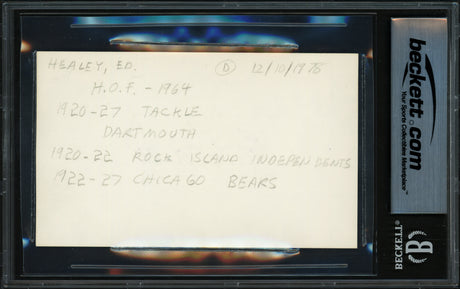 HEALEY, ED. D 12/10/1978
H.O.F. - 1964
1920-27 TACKLE
DARTMOUTH
1920-22 ROCK ISLAND INDEPENDENTS
1922-27 CHICAGO BEARS
beckett.com
Your Sports Collectibles Marketplace™
BECKETT
B